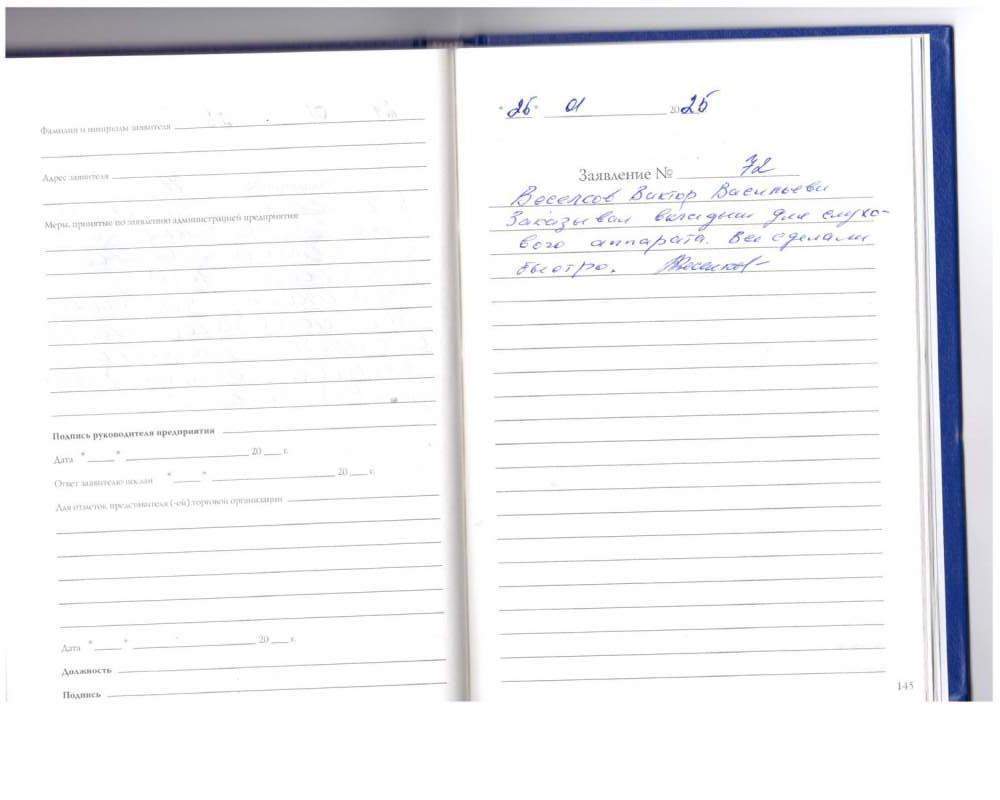 Фамилия и инициалы заявителя
Адрес заявителя
Меры, принятые по заявлению администрацией предприятия
Подпись руководителя предприятия
Дата "____" ____ 20 ___ г.
Ответ заявителю послан "____" ____ 20 ___ г.
Для отметок представителя (-ой) торговой организации
Дата "____" ____ 20 ___ г.
Должность
Подпись
"25" 01 2025
Заявление № 72
Виктор Васильеви
Заказывал вкладыш для слухо-
вого аппарата. Все сделали
быстро.
145